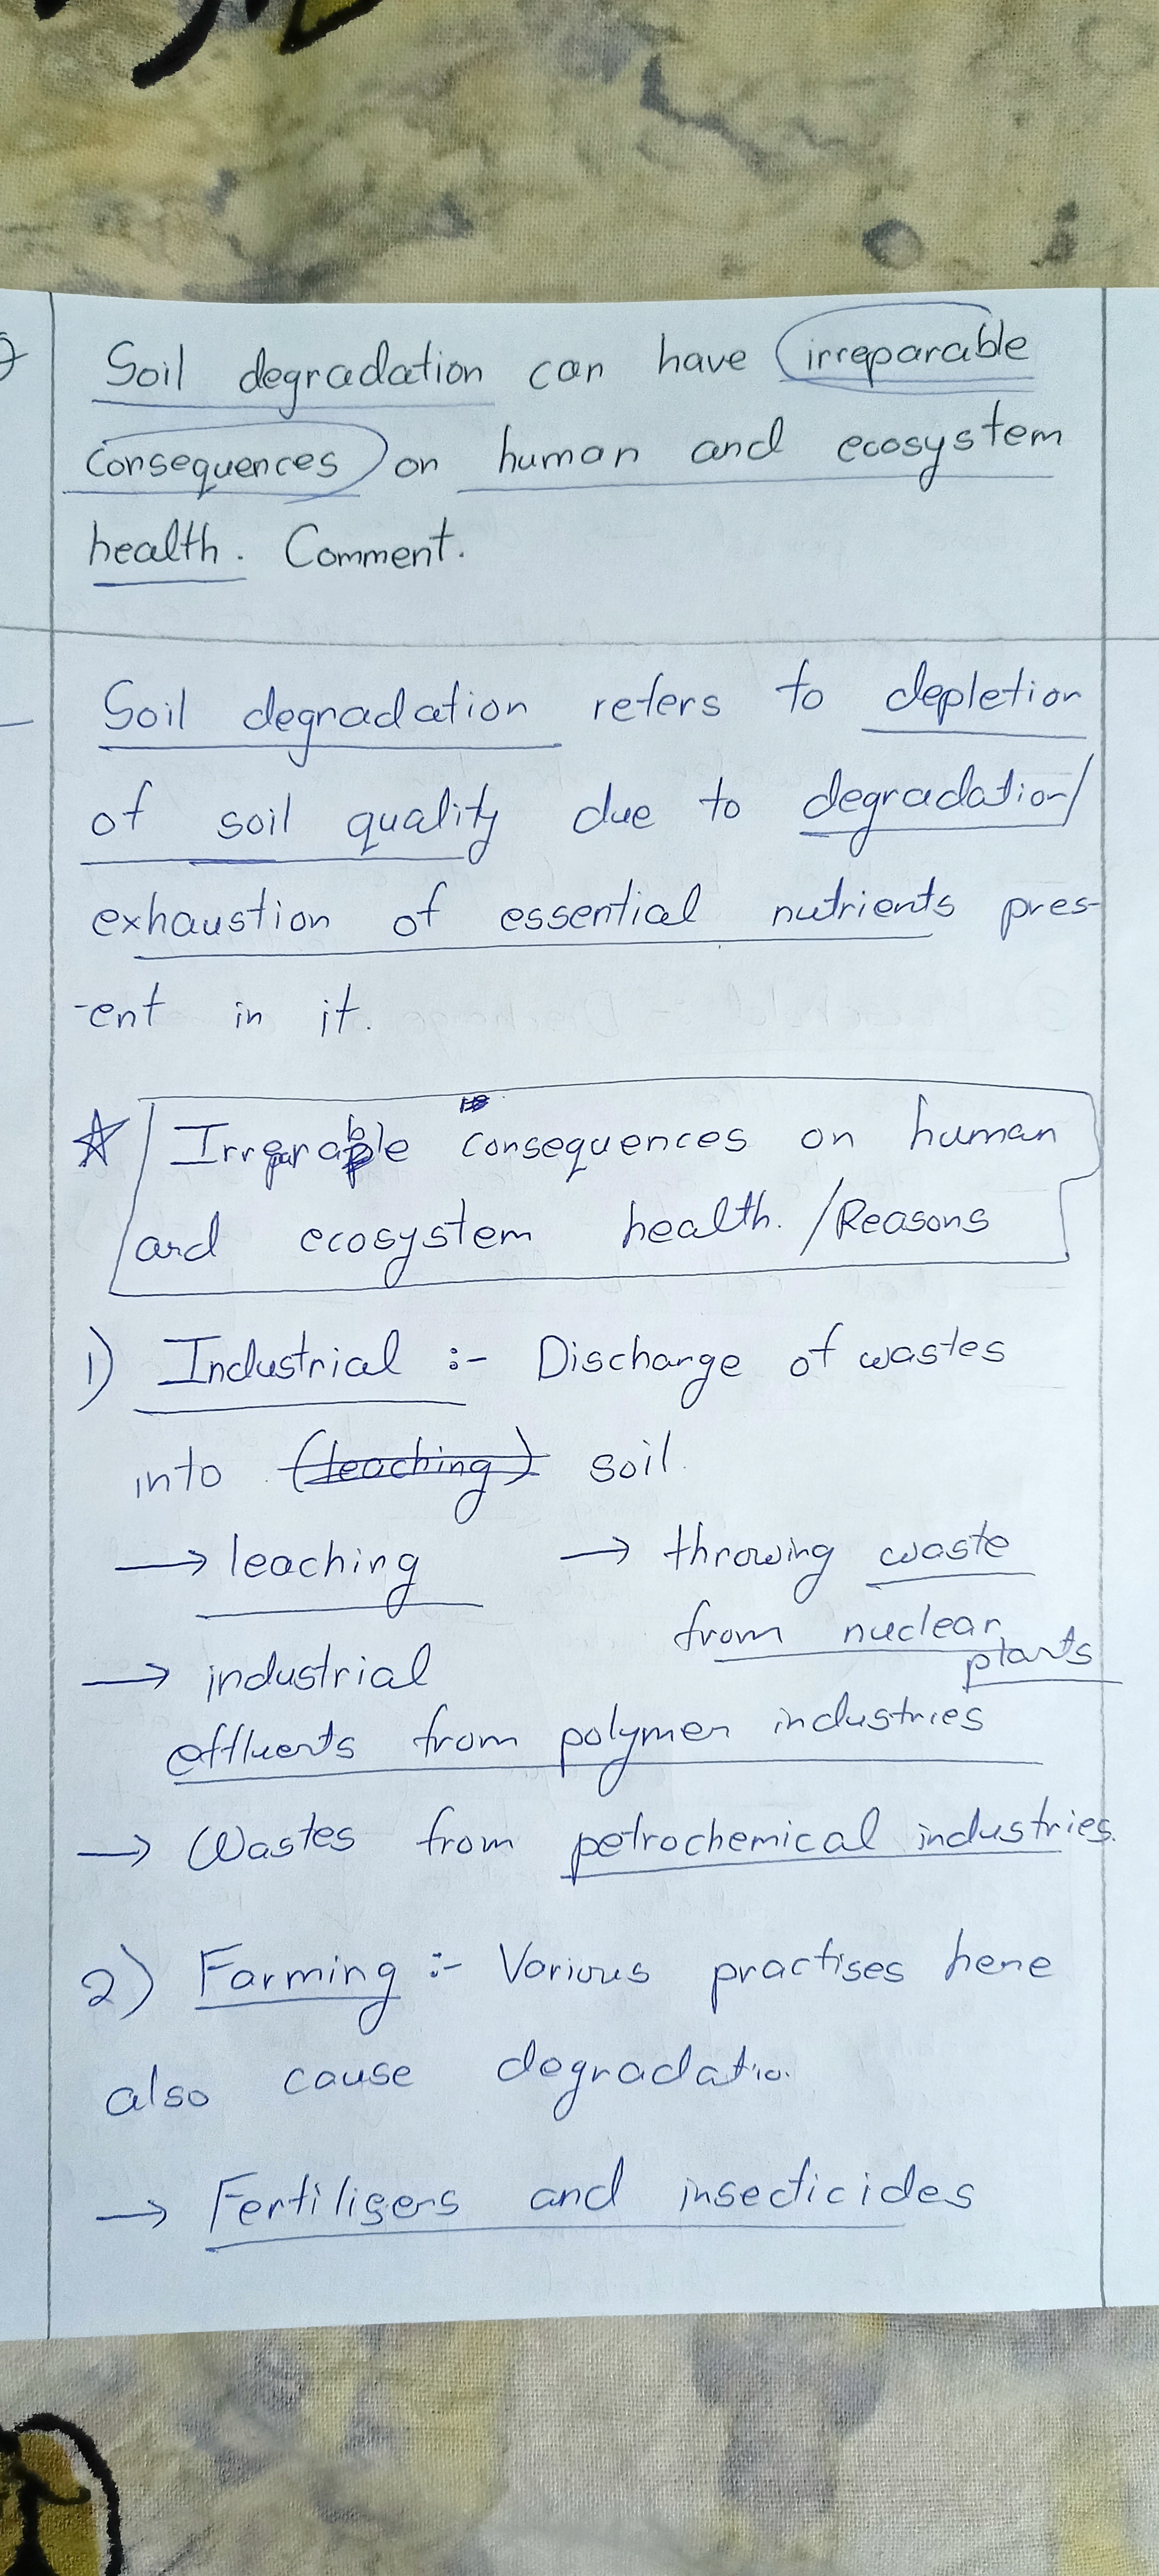 Soil degradation can have irreparable
consequences on human and ecosystem
health. Comment.
Soil degradation refers to depletion
of soil quality due to degradation/
exhaustion of essential nutrients pres-
-ent in it.
Irreparable consequences on human
and ecosystem health. /Reasons
1) Industrial :- Discharge of wastes
into (leaching) soil.
→ leaching → throwing waste
from nuclear
plants
→ industrial
effluents from polymer industries
→ Wastes from petrochemical industries.
2) Farming :- Various practises here
also cause degradatio.
→ Fertilisers and insecticides